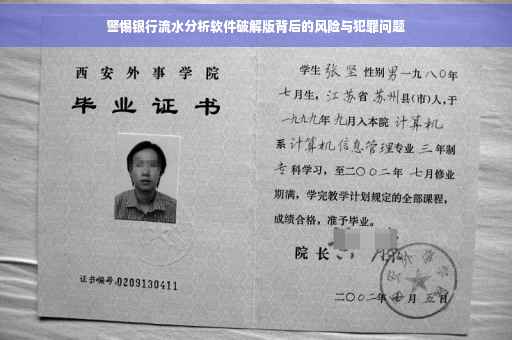 警惕银行流水分析软件破解版背后的风险与犯罪问题
西安外事学院
毕业证书
证书编号:0209130411
学生 张坚 性别 男 一九八〇年
七月生，江苏省 苏州县(市)人，于
一九九九年 九月入本院 计算机
系 计算机信息管理专业 三 年制
专科学习，至二〇〇二年 七月修业
期满，学完教学计划规定的全部课程，
成绩合格，准予毕业。
院长
二〇〇二年 月 五日